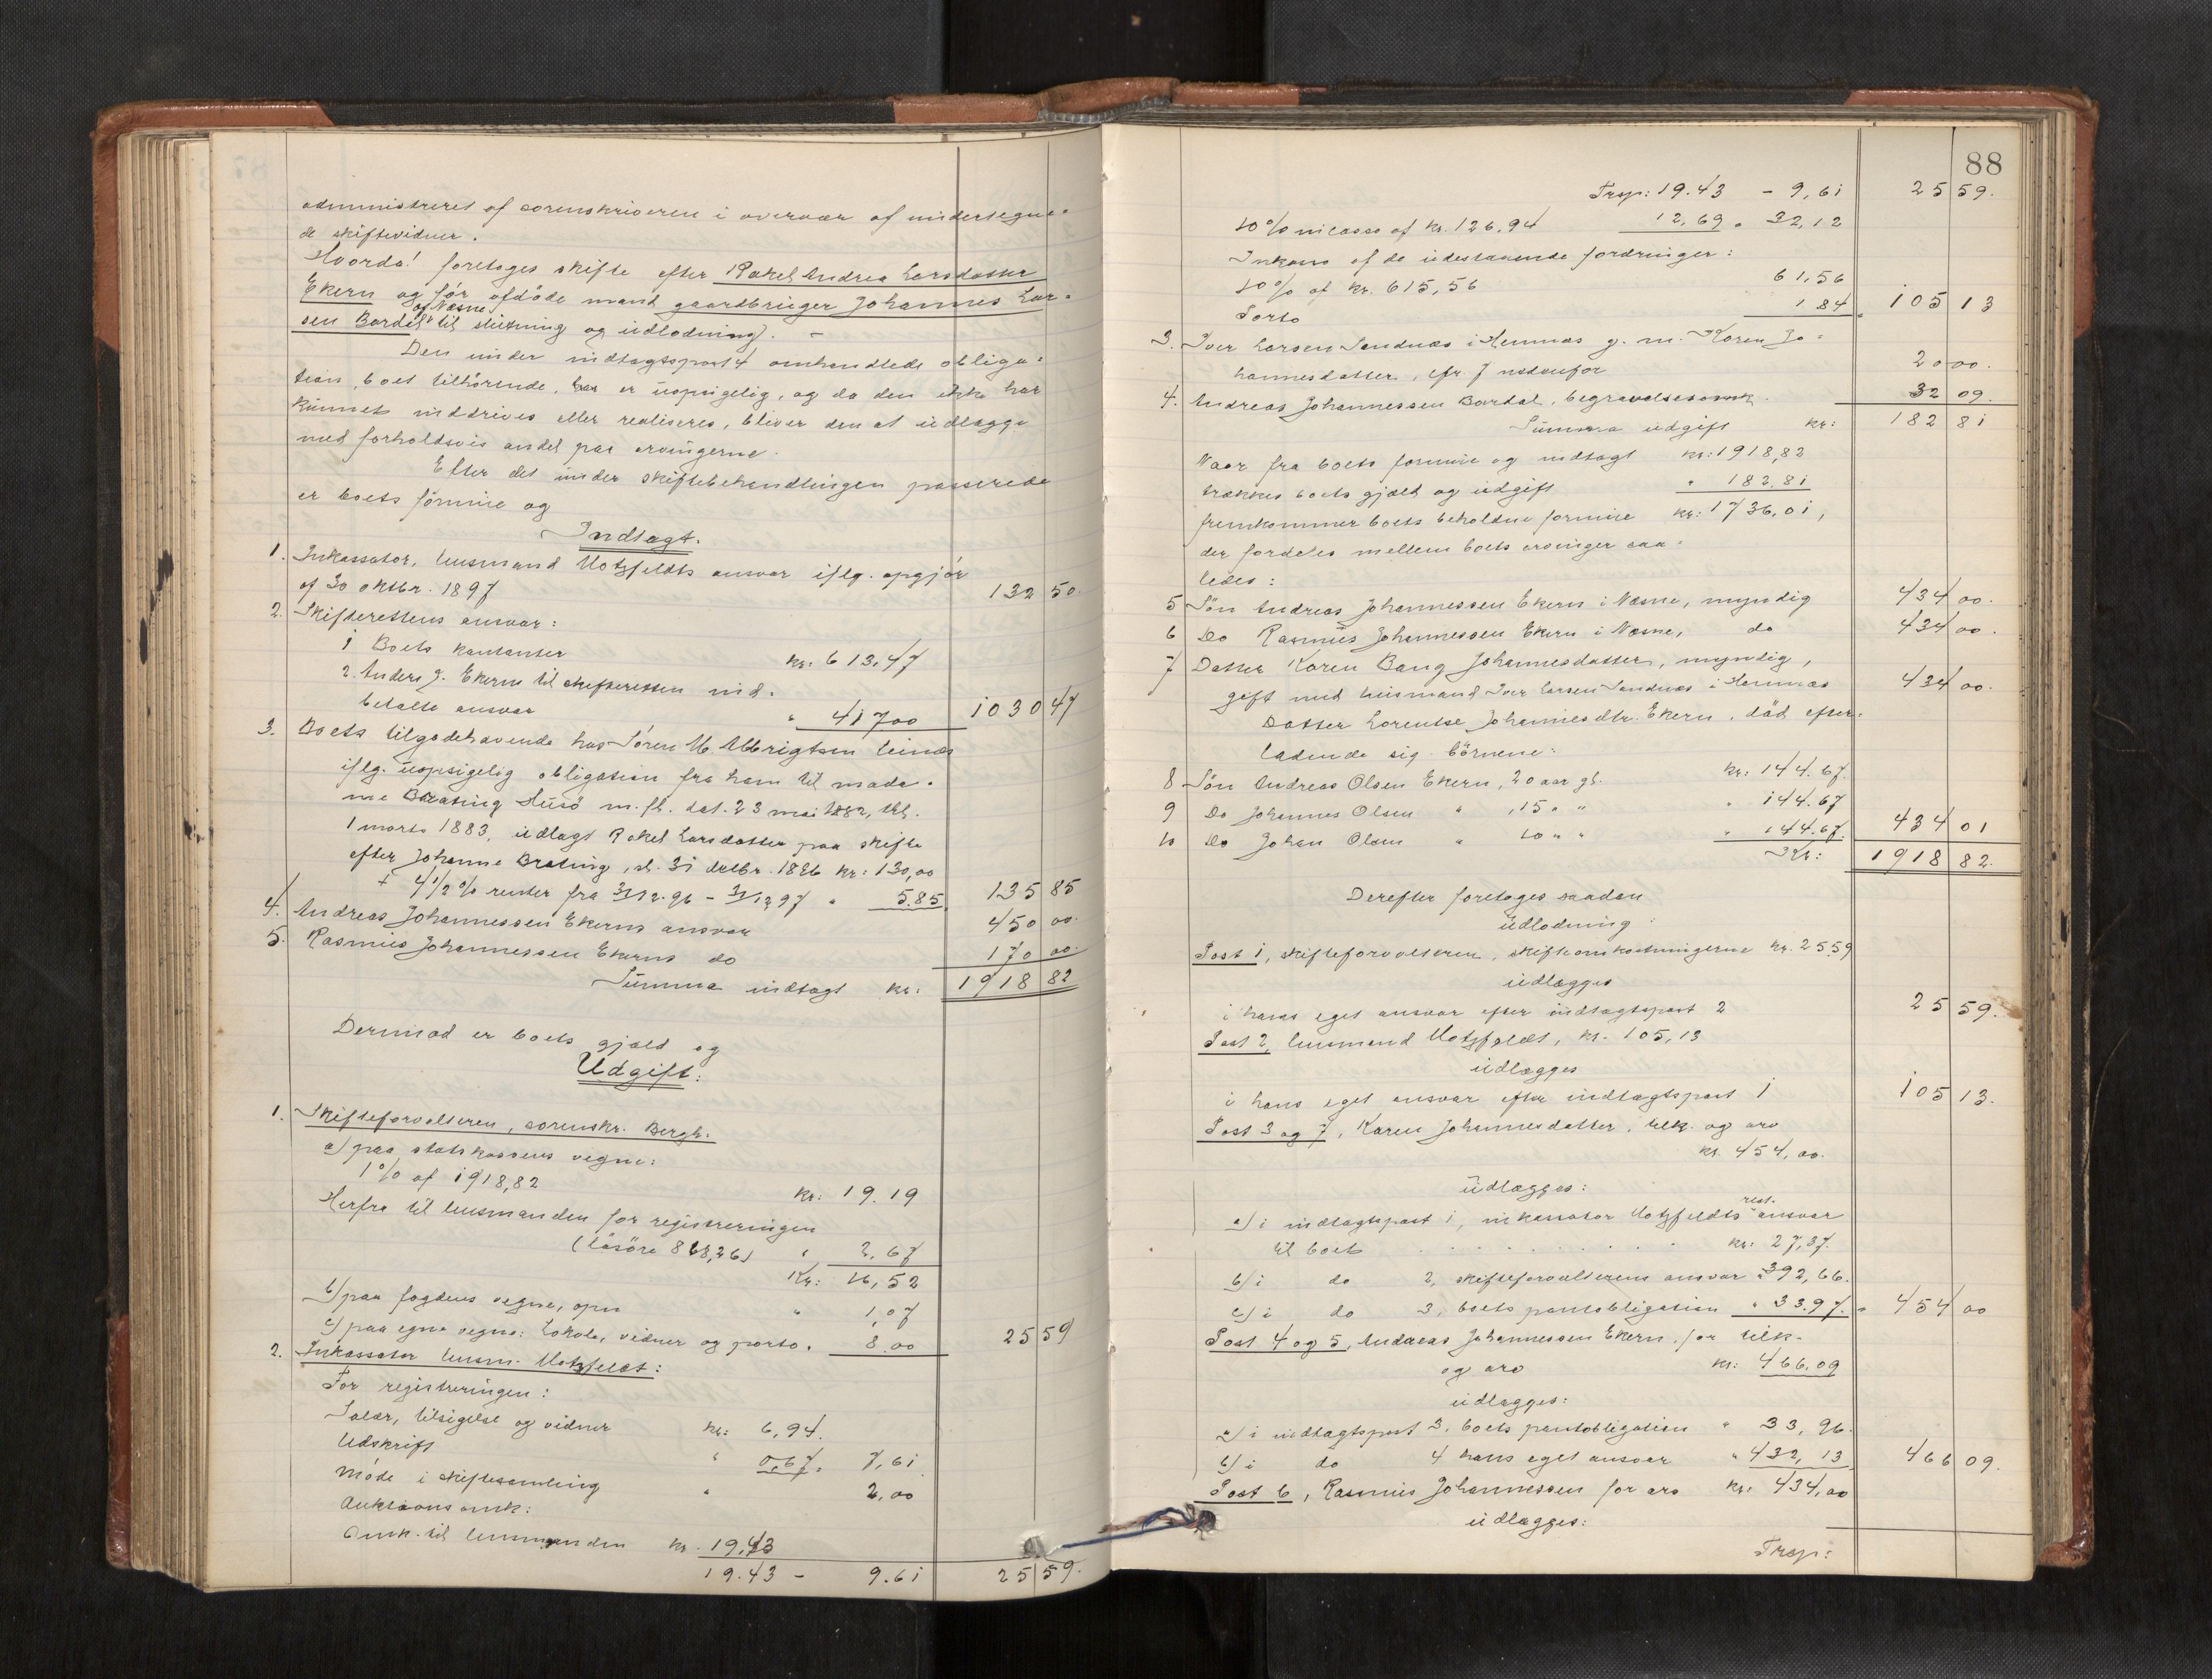 administreret af sorenskriveren i overvær af undertegne-
de skiftevidner.
Hvorda! foretoges skifte efter Rakel Andrea Larsdatter
Ekern og før afdöde mand gaardbruger Johannes Lar-
sen Bardal af Næsne til slutning og udlodning). –
Den under indtægtspost 4 omhandlede obliga-
tion, boet tilhörende, er uopsigelig, og da den ikke har
kunnet inddrives eller realiseres, bliver den at udlægge
med forholdsvis andel paa arvingerne.
Efter det under skiftebehandlingen passerede
er boets formue og
Indtægt.
1. Inkassator, lensmand Motzfeldts ansvar iflg. opgjör
af 30 oktbr. 1897 132 50.
2. Skifterettens ansvar:
1 Boets kontanter kr: 613.47
2. Anders J. Ekern til skifteretten ind-
betalte ansvar " 417 00 1030 47
3. Boets tilgodehavende hos Sören M Albrigtsen Leines
iflg. uopsigelig obligation fra ham til mada-
me Brating Husö m. fl. dat. 23 mai 1882, thl.
1 marts 1883, udlagt Rakel Larsdatter paa skifte
efter Johanne Brating, sl. 31 decbr. 1886 kr: 130,00
+ 4 1/2 % renter fra 31/12.96 – 31/12 97 " 5.85 135 85
4. Andreas Johannessen Ekerns ansvar 450 00.
5. Rasmus Johannessen Ekerns do 170 00.
Summa indtægt kr: 1918 82
Dermod er boets gjæld og
Udgift:
1. Skifteforvalteren, sorenskr. Bergh.
a) paa statskassens vegne:
1% af 1918,82 kr: 19.19
Herfra til lensmanden for registreringen
(lösöre 868,26) " 2.67
Kr: 16,52
b) paa fogdens vegne, opn " 1,07
c) paa egne vegne: Lokale, vidner og porto. 8.00 25 59
2. Inkassator lensm. Motzfeldt:
For registreringen:
Salær, tilsigelse og vidner kr: 6,94.
Udskrift " 0.67. 7,61
Möde i skiftesamling " 2,00
Auktionsomk:
Omk. til lensmanden kr. 19,43
19.43 – 9.61 25 59.
88
Trsp: 19.43 – 9,61 25 59.
10% incasso af kr. 126,94 12,69 " 32,12
Inkasso af de udestaaende fordringer:
10% af kr. 615,56 61,56
Porto 1.84 " 105 13
3. Iver Larsen Sandnæs i Hemnæs g. m. Karen Jo-
hannesdatter, cfr. 7 nedenfor 20 00.
4. Andreas Johannessen Bardal, begravelsesomk. 32 09.
Summa udgift kr: 182 81
Naar fra boets formue og indtægt kr: 1918,82
trækkes boets gjæld og udgift " 182.81
fremkommer boets beholdne formue kr: 1736,01,
der fordeles mellem boets arvinger saa-
ledes:
5 Sön Andreas Johannessen Ekern i Næsne, myndig 434 00.
6 Do Rasmus Johannessen Ekern i Næsne, do 434 00.
7 Datter Karen Bang Johannesdatter, myndig,
gift med husmand Iver Larsen Sandnæs i Hemnæs 434 00.
Datter Lorentse Johannesdtr. Ekern, död efter-
ladende sig börnene:
8 Sön Andreas Olsen Ekern, 20 aar gl. kr: 144.67.
9 Do Johannes Olsen " , 15 " " " 144.67
10 Do Johan Olsen " 10 " " " 144.67. 434 01
Kr: 1918 82.
Derefter foretoges saadan
Udlodning:
Post 1, skifteforvalteren, skifteomkostningerne kr. 25.59
udlægges
i hans eget ansvar efter indtægtspost 2 25 59.
Post 2, lensmand Motzfeldt, kr. 105,13
udlægges
i hans eget ansvar efter indtægtspost 1 105 13.
Post 3 og 7, Karen Johannesdatter, tilk. og arv
kr. 454,00.
udlægges:
a) i indtægtspost 1, inkassator Motzfeldts rest. ansvar
til boet . . . . . . . . . . kr: 27,37.
b) i do 2, skifteforvalterens ansvar " 392,66.
c) i do 3, boets pantobligation " 33.97. " 454 00
Post 4 og 5, Andreas Johannessen Ekern, for tilk.
og arv kr: 466.09
udlægges:
a) i indtægtspost 3. boets pantobligation " 33,96.
b) i do 4 hans eget ansvar " 432,13 466 09.
Post 6, Rasmus Johannessen for arv kr: 434,00
udlægges:
Trsp: